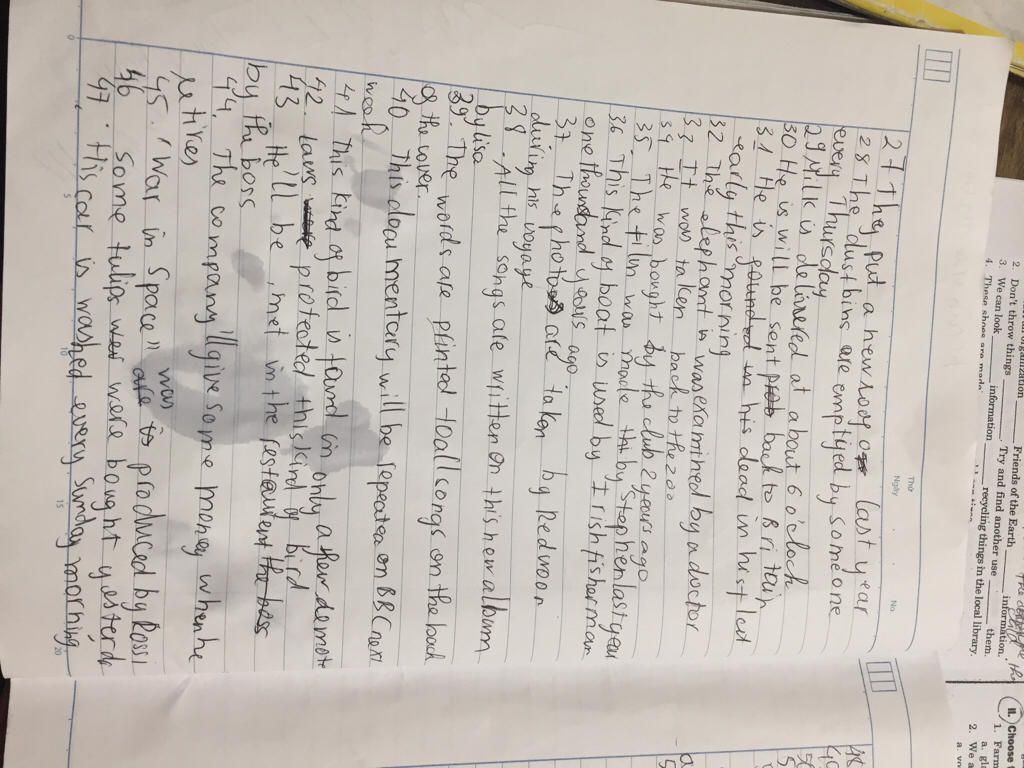 Thứ
Ngày . . No.
27 They put a new roof last year
28 The dustbins are emptied by someone
every Thursday
29 Milk is delivered at about 6 o'clock
30 He is will be sent back to Britain
31 He is found in his dead in his t
early this morning
32 The elephant is was examined by a doctor
33 It was taken back to the zoo
34 He was bought by the club 2 years ago
35. The film was made by Stephen last year
36. This kind of boat is used by Irish fisherman
one thousand years ago
37 The photos are taken by
during his voyage
38. All the songs are written on this new album
by lisa
39. The words are printed to all songs on the back
of the cover.
40 This documentary will be repeated on BBC next
week
41 This kind of bird is found in only a few
42. Laws protected this kind of bird
43 He'll be met in the restaurent the boss
by the boss
44. The company'll give some money when he
retires
45. "War in Space" was are is produced by Rossi
46 Some tulips were bought
47. His car is washed every Sunday morning
2. Don't throw things . Try and find another use them.
3. We can look information recycling things in the local library.
4. These shoes are made
Friends of the Earth information.
II. Choose
1. Farm
2. We a